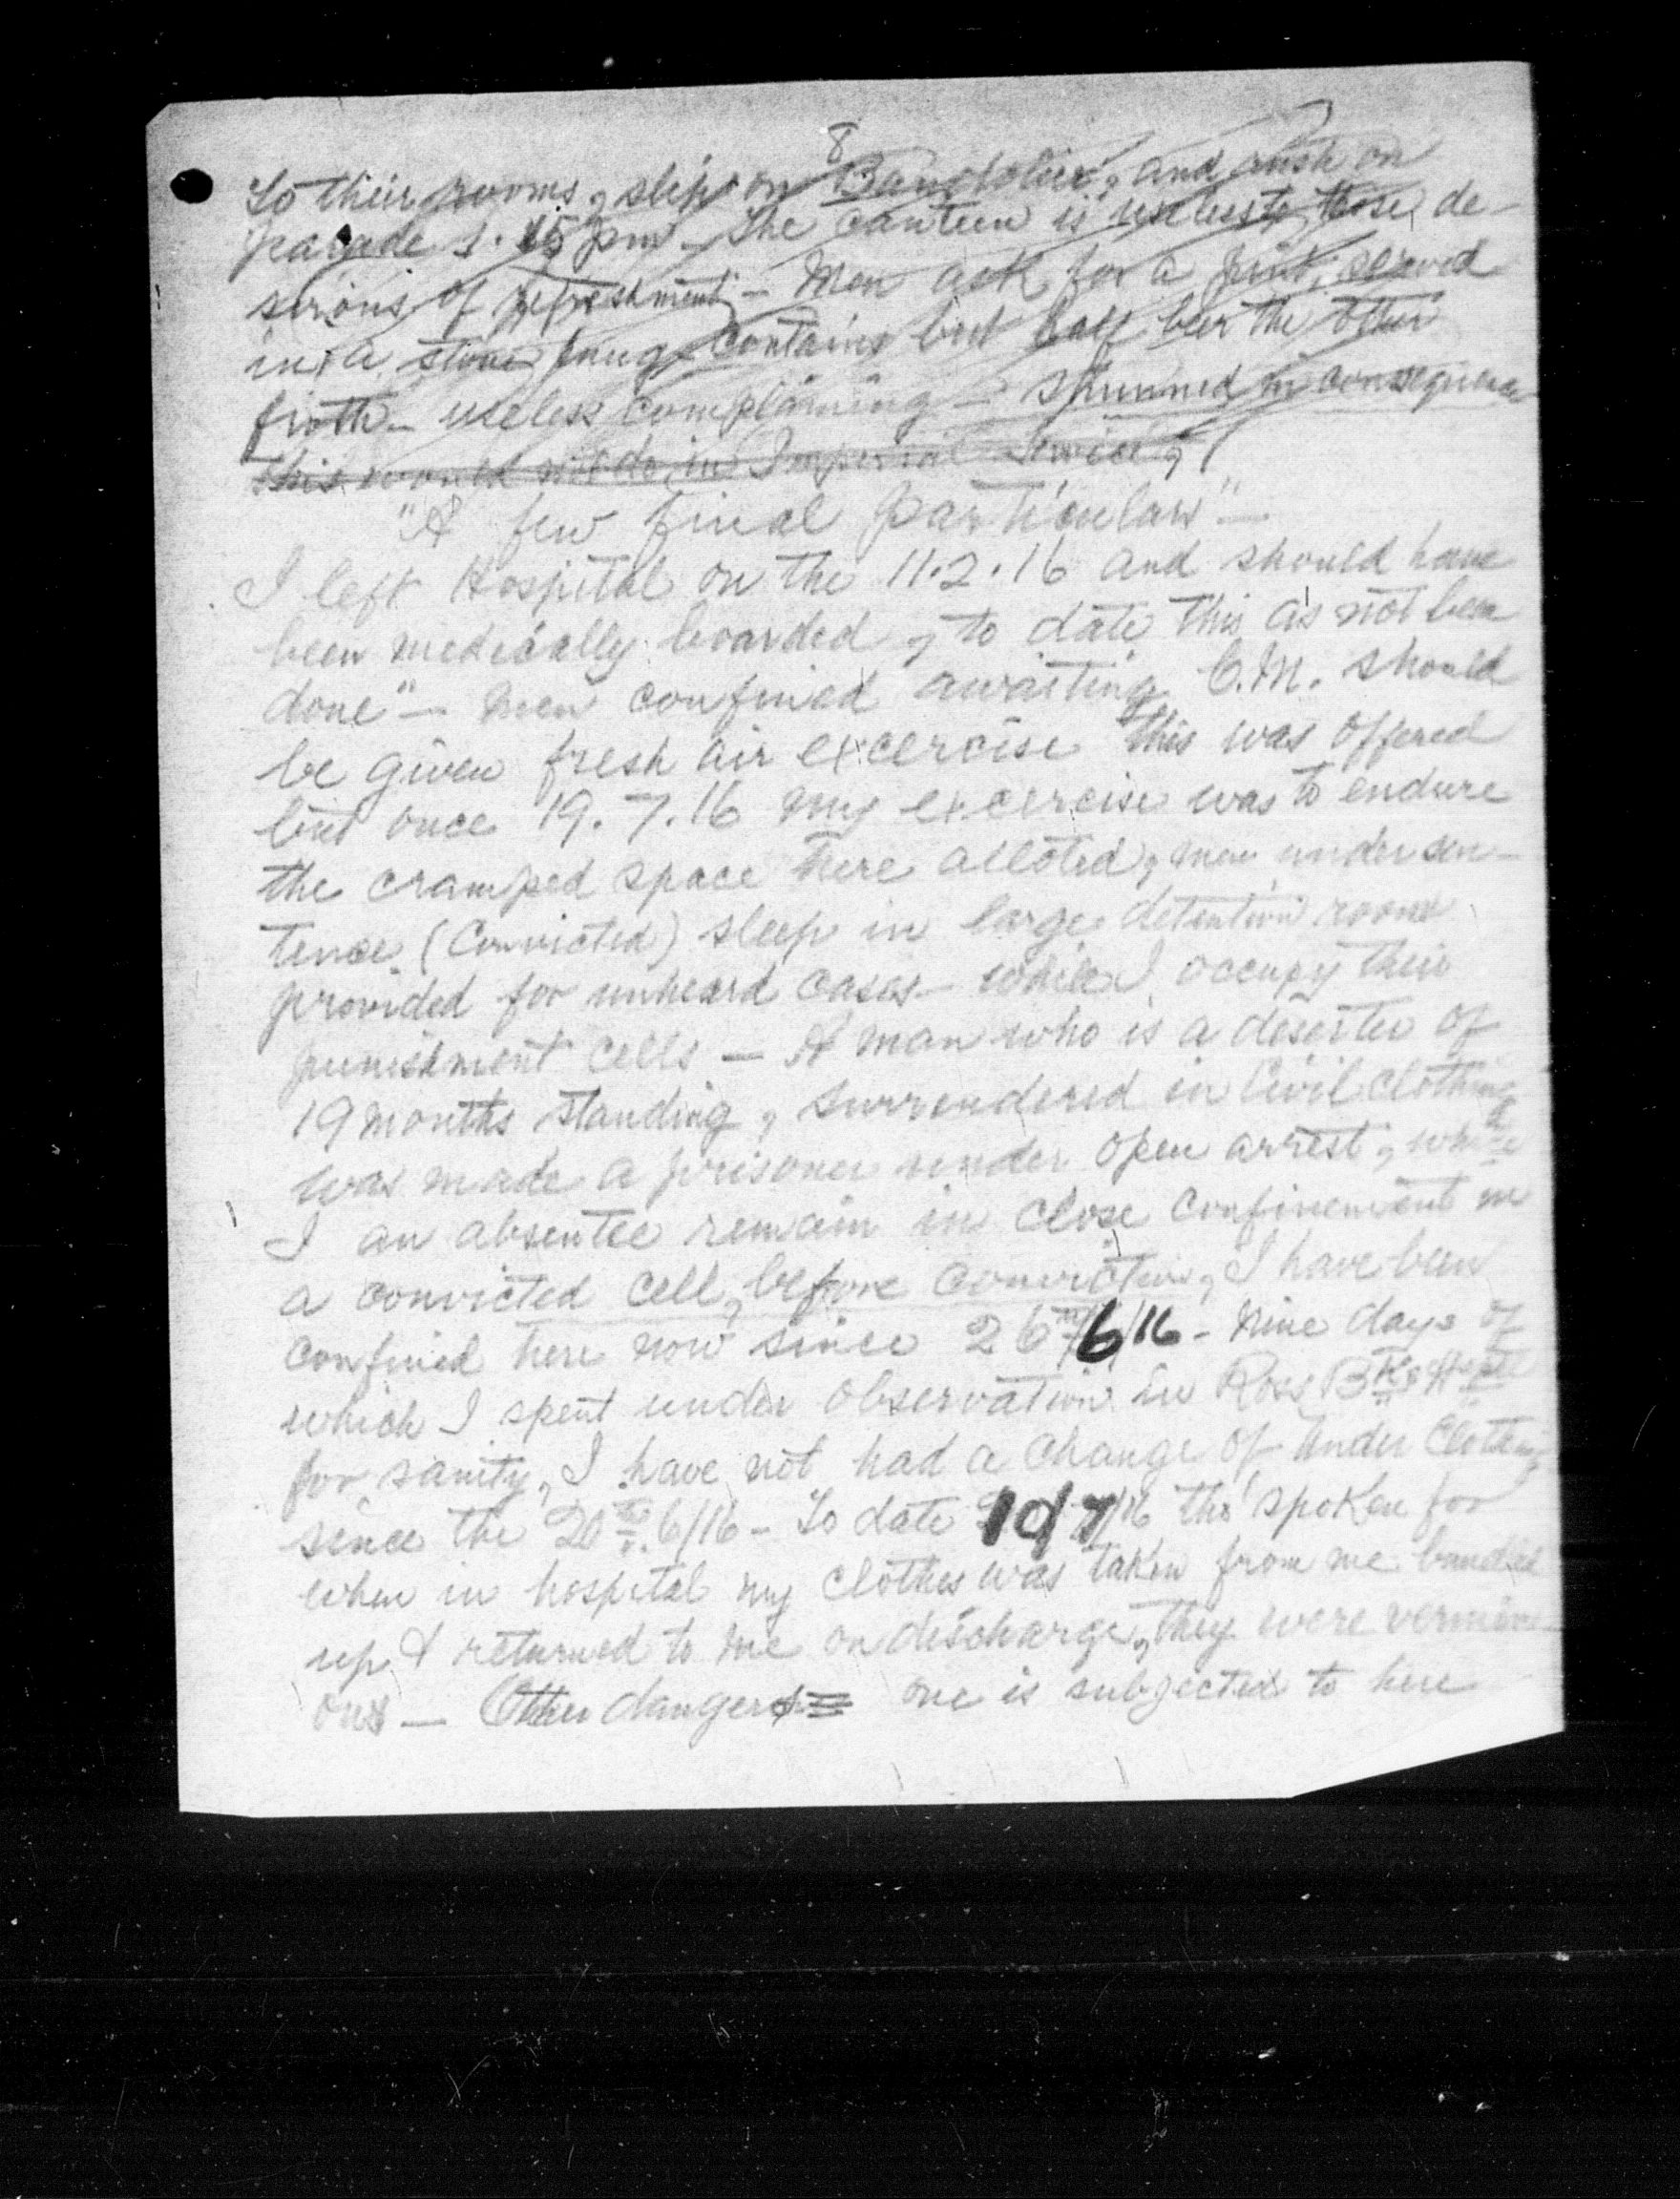 8
To their rooms, slip on Bandolier, and rush on
parade 1.45 pm - The canteen is useless to those de-
sirous of refreshment - Men ask for a pint, served
in a stone mug contains but half beer the other
froth - useless complaining - shunned in consequence
this would not do in Imperial Service,
"A few final particulars" -
I left Hospital on the 11.2.16 and should have
been medically boarded, to date this as not been
done" - Men confined awaiting C.M. should
be given fresh air excercise this was offered
but once 19.7.16 my excercise was to endure
the cramped space here alloted, men under sen-
tence (Convicted) sleep in large detention room
provided for unheard cases - while I occupy their
punishment cells - A man who is a deserter of
19 months standing, surrendered in Civil Clothing
was made a prisoner under open arrest, while
I an absentee remain in close confinement in
a convicted cell, before conviction, I have been
confined here now since 26th/6/16 - Nine days of
which I spent under observation in Ross Bks
for sanity, I have not had a change of under clothing
since the 20th.6/16 - To date 10/7/16 tho' spoken for
when in hospital my clothes was taken from me bundled
up & returned to me on discharge, they were vermin-
ous - Other dangers one is subjected to here